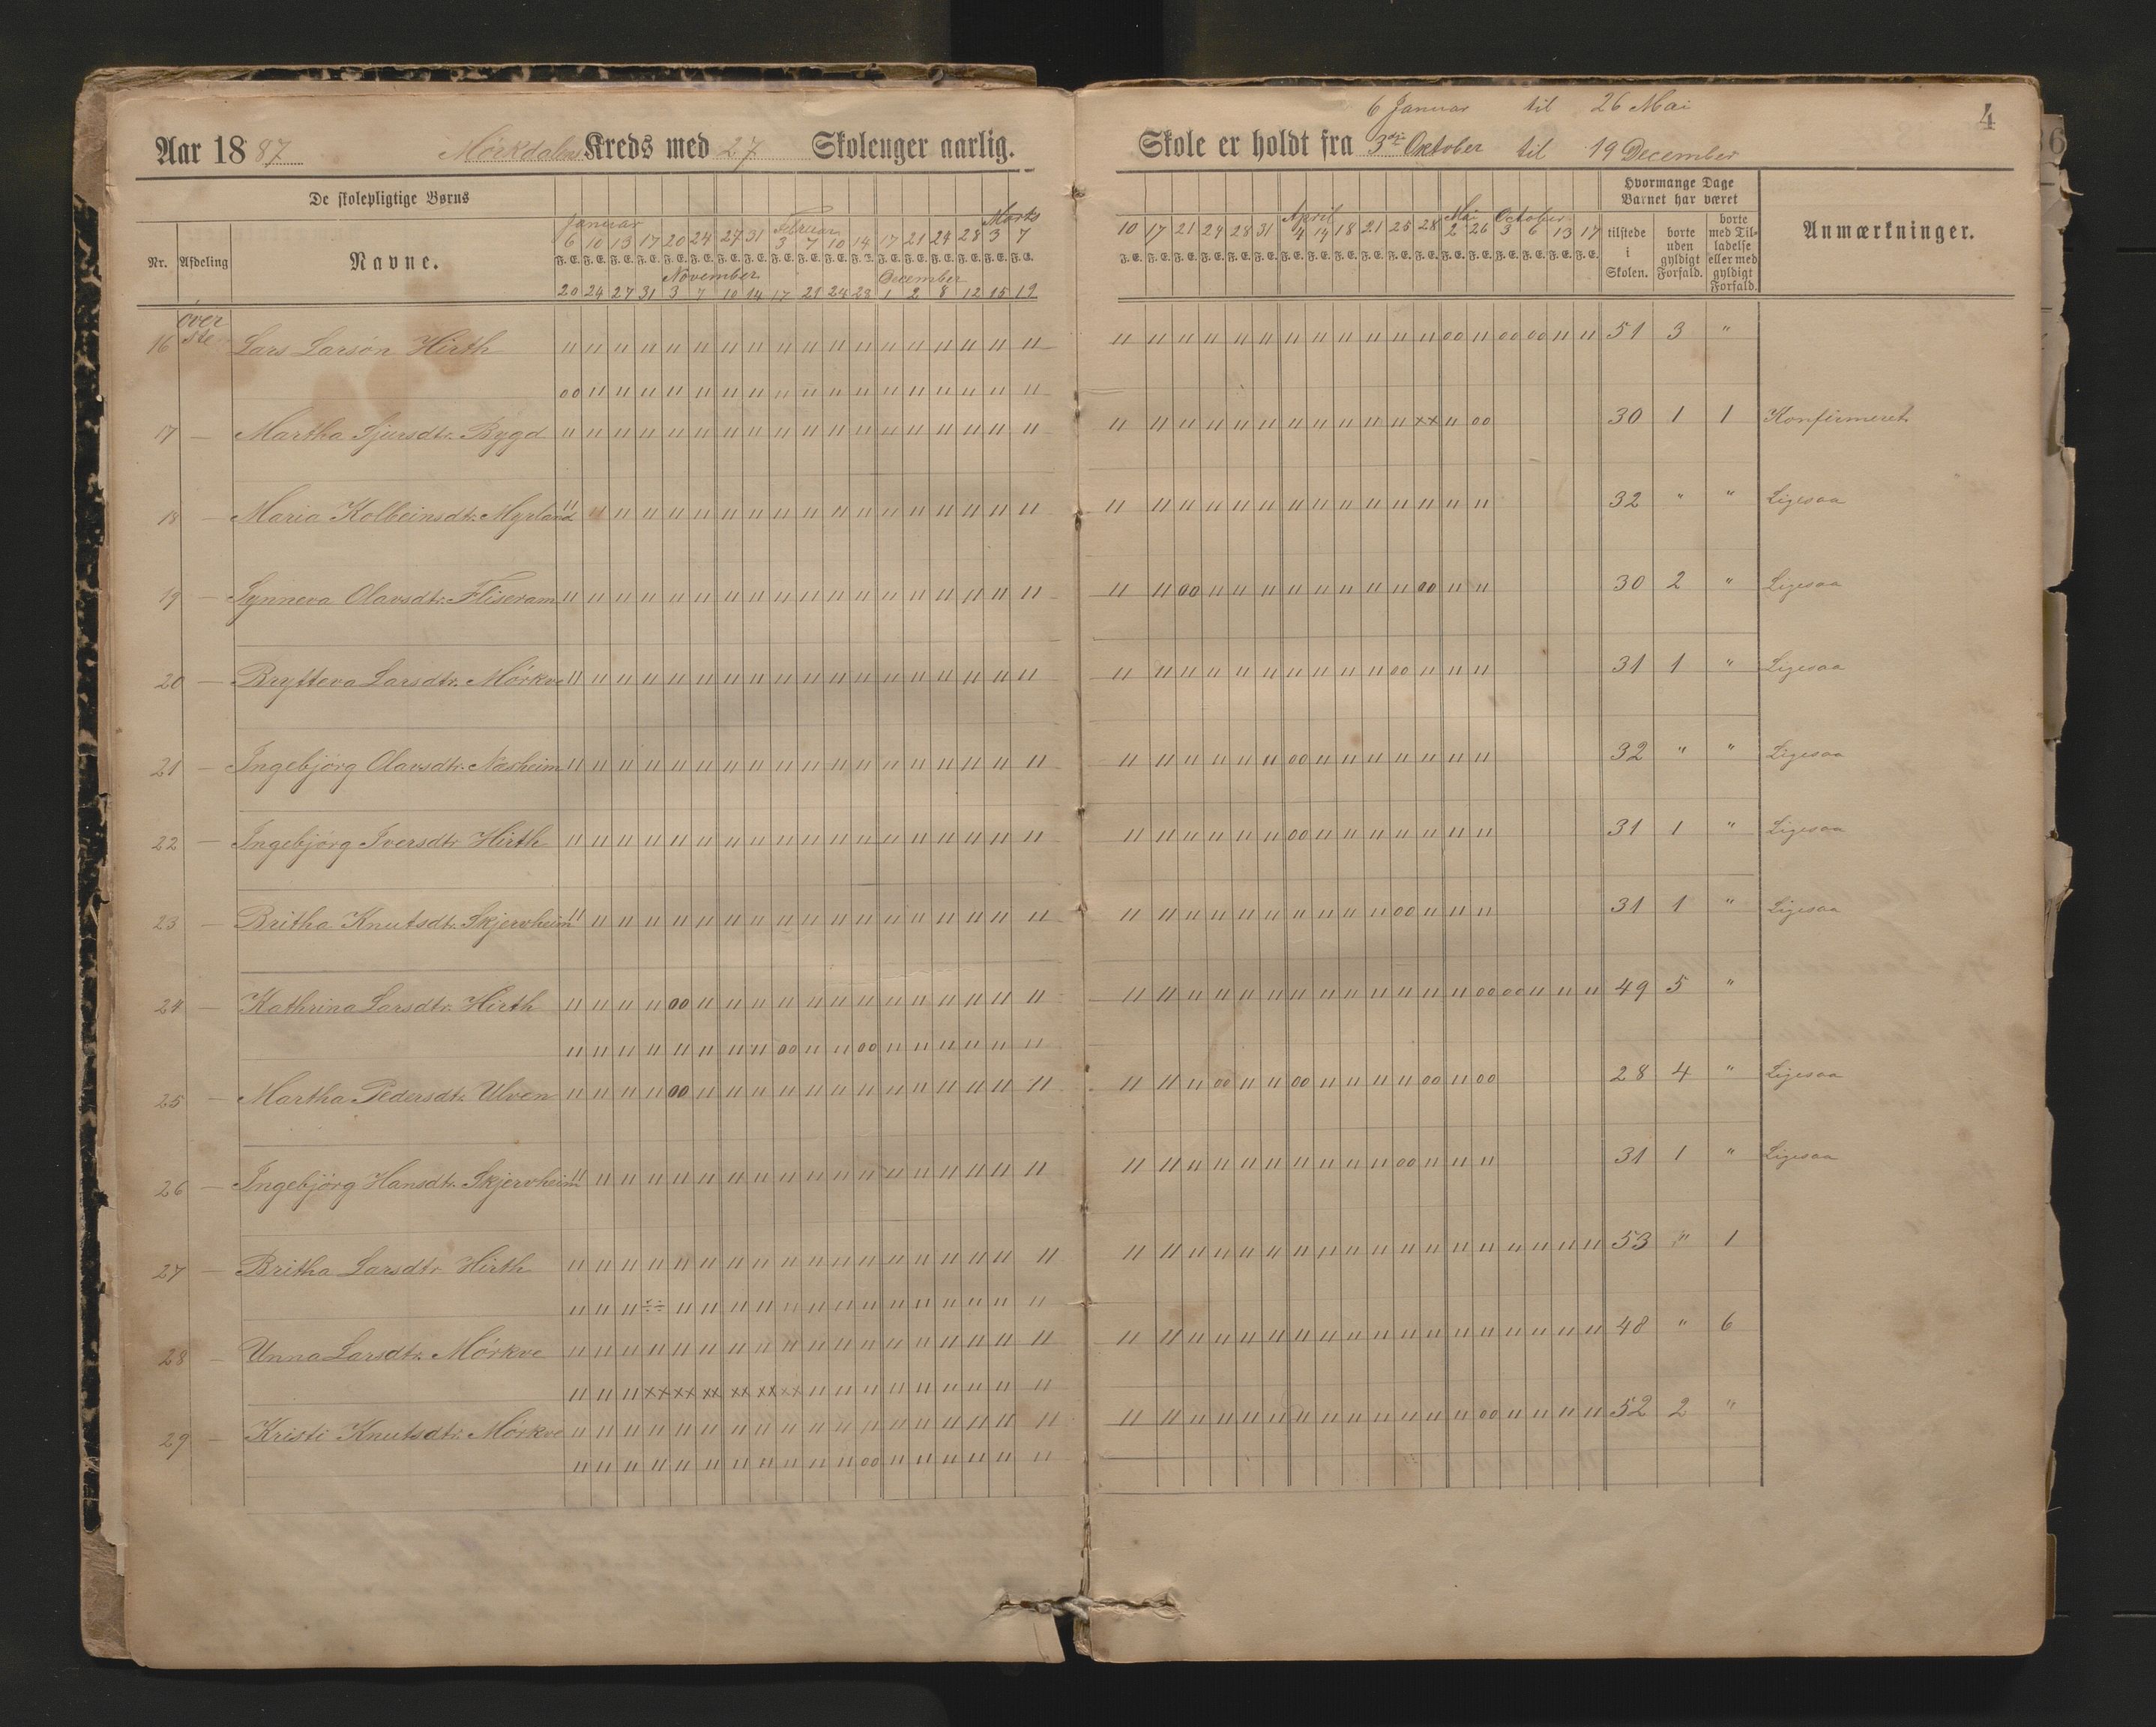 6 Januar til 26 Mai 4
Aar 1887 Mørkdalens Kreds med 27 Skoleuger aarlig. Skole er holdt fra 3die Oktober til 19 December
De skolepligtige Børns
Hvormange Dage Barnet har været
Nr. Afdeling Navne.
tilstede i Skolen. borte uden gyldigt Forfald. borte med Tilladelse eller med gyldigt Forfald. Anmærkninger.
Januar Februar Marts
6 10 13 17 20 24 27 31 3 7 10 14 17 21 24 28 3 7
F. E. F. E. F. E. F. E. F. E. F. E. F. E. F. E. F. E. F. E. F. E. F. E. F. E. F. E. F. E. F. E. F. E. F. E.
November December
20 24 27 31 3 7 10 14 17 21 24 28 1 2 8 12 15 19
April Mai October
10 17 21 24 28 31 4 14 18 21 25 28 2 26 3 6 13 17
F. E. F. E. F. E. F. E. F. E. F. E. F. E. F. E. F. E. F. E. F. E. F. E. F. E. F. E. F. E. F. E. F. E. F. E.
16 øverste Lars Larsøn Hirth 51 3 "
17 — Martha Sjursdtr. Bygd 30 1 1 Konfirmeret
18 — Maria Kolbeinsdtr. Myrland 32 " " Ligesaa
19 — Synneva Olavsdtr. Fliseram 30 2 " Ligesaa
20 — Brytteva Larsdtr. Mørkve 31 1 " Ligesaa
21 — Ingebjørg Olavsdtr. Næsheim 32 " " Ligesaa
22 — Ingebjørg Iversdtr Hirth 31 1 " Ligesaa
23 — Britha Knutsdtr. Skjervheim 31 1 " Ligesaa
24 — Kathrina Larsdtr. Hirth 49 5 "
25 — Martha Pedersdtr. Ulven 28 4 " Ligesaa
26 — Ingebjørg Hansdtr. Skjervheim 31 1 " Ligesaa
27 — Britha Larsdtr Hirth 53 " 1
28 — Unna Larsdtr. Mørkve 48 " 6
29 — Kristi Knutsdtr. Mørkve 52 2 "